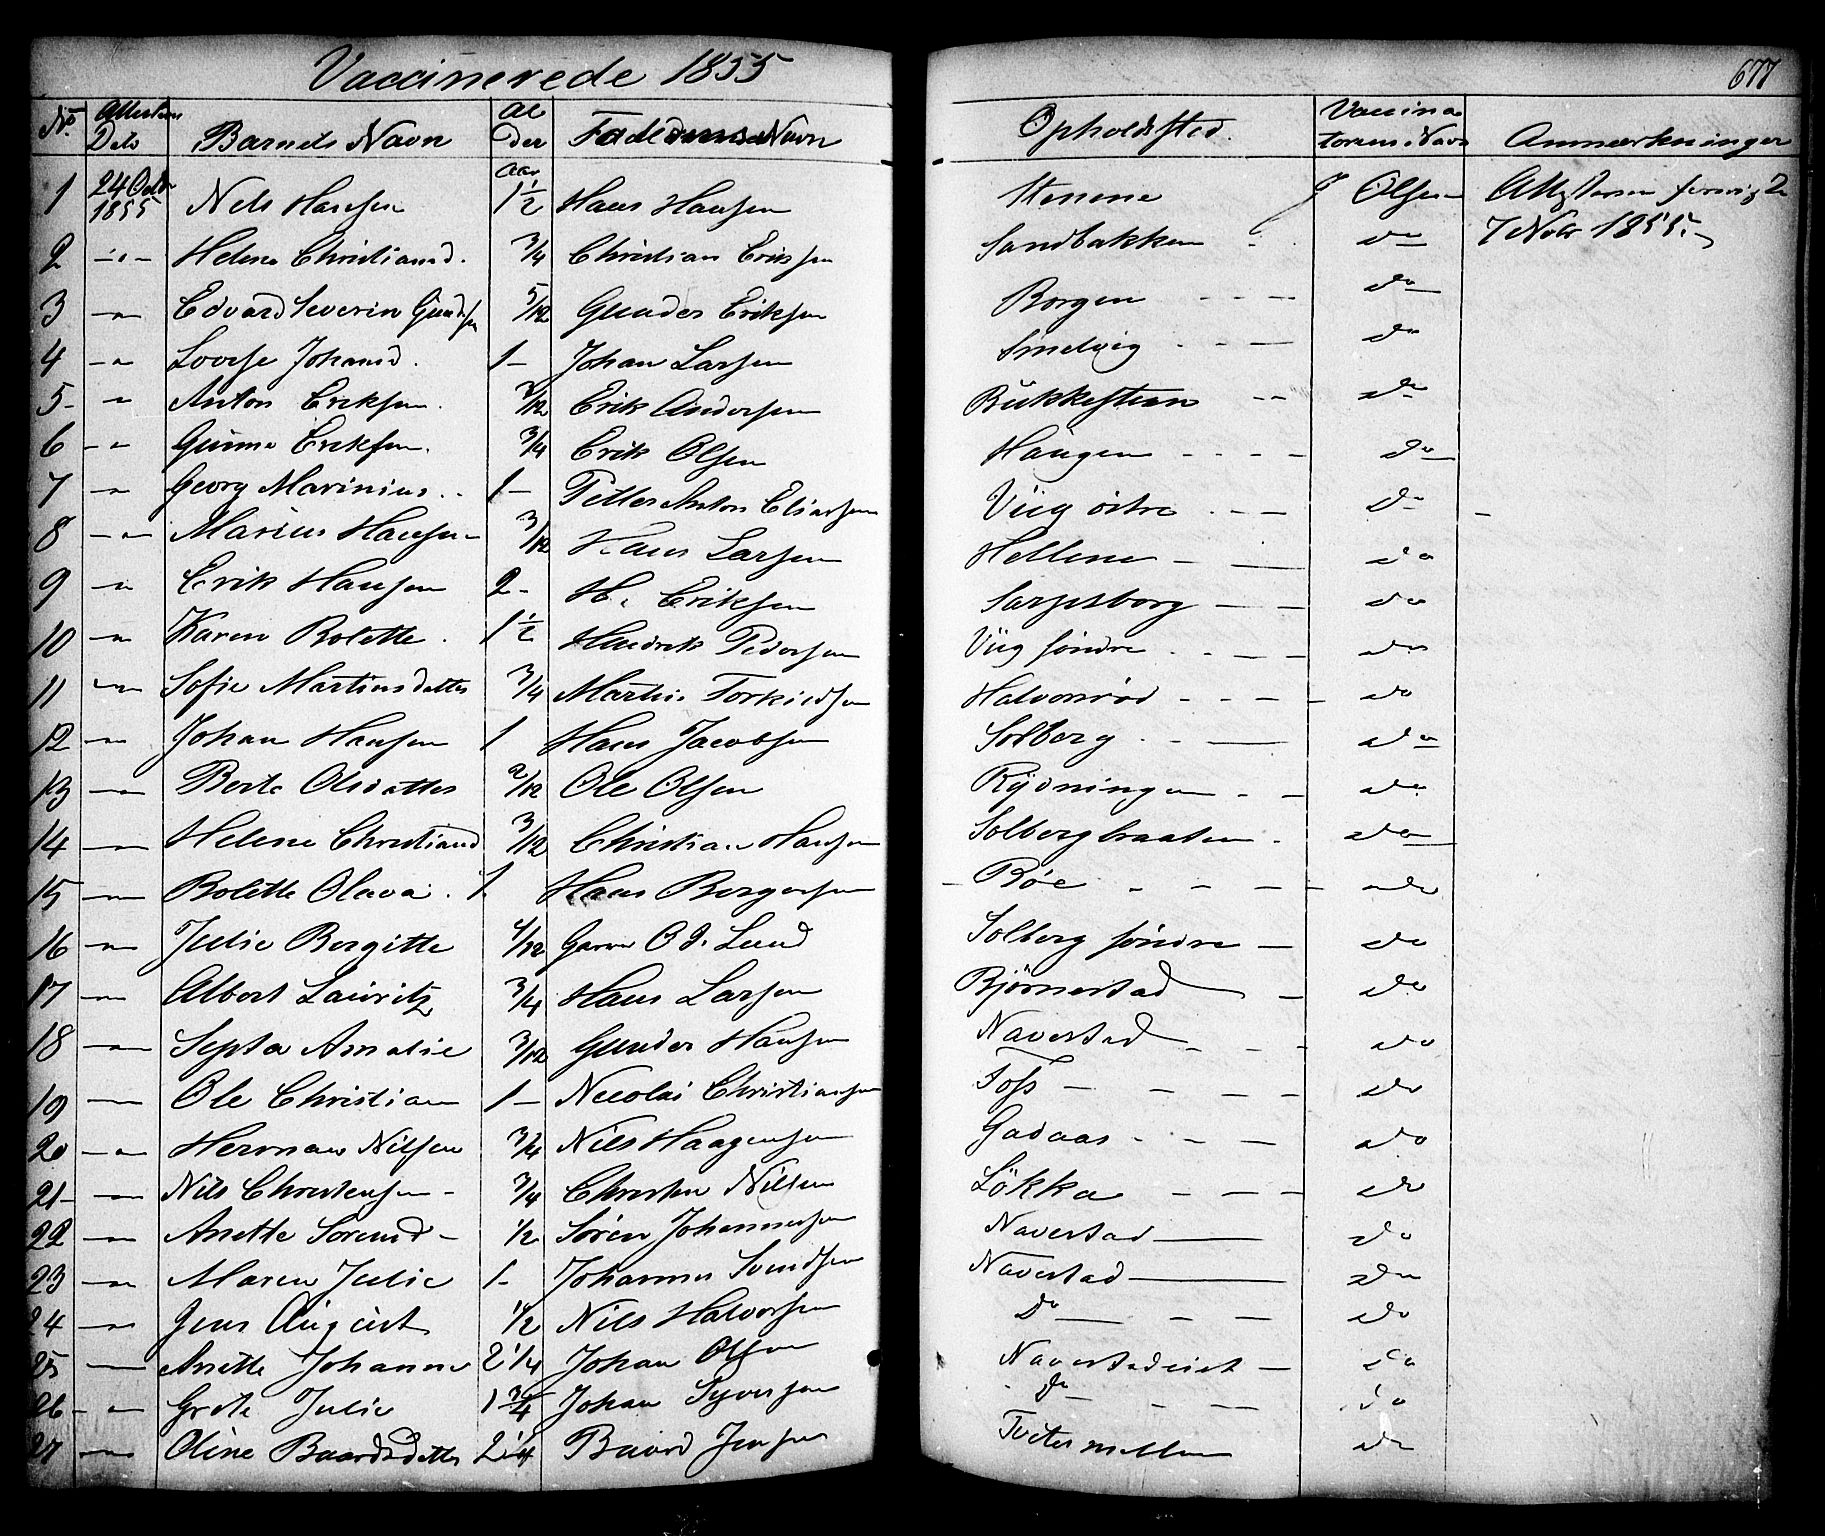 Vaccinerede 1855
677
No. Attestens Dato Barnets Navn Alder Faderens Navn Opholdsted. Vaccinatorens Navn Anmærkninger
Aar
1 24 Octr 1855 Nels Hansen 1½ Hans Hansen Stenene Olsen Attesten
7 Nobr 1855.
2 -"- Helene Christiansd. 3/4 Christian Eriksen Sandbakken do
3 -"- Edvard Severin Gundersen 5/12 Gunder Eriksen Borgen - - - do
4 -"- Lovise Johansd. 1- Johan Larsen Smedvig - - - do
5- " Anton Eriksen. 3/12 Erik Andersen Bukkesteen - - do
6 -"- Gunne Eriksen. 3/4 Erik Olsen Haugen - - - - do
7 -"- Georg Marinius.. 1- Petter Anton Eliassen Viig östre - - - do
8 -"- Marius Hansen 3/12 Hans Larsen Hellene - - do
9 -"- Erik Hansen 2- H. Eriksen Sarpsborg - - - do
10 -"- Karen Bolette. 1½ Hendrik Pedersen Viig søndre - - - do
11 -"- Sofie Martinsdatter 3/4 Martin Torkildsen Halvorsrød - - - - do
12 -"- Johan Hansen 1 Hans Jacobsen Solberg - - do
13 -"- Berte Olsdatter 2/12 Ole Olsen Rydningen - - do
14 -"- Helene Christiansd 3/12 Christian Hansen Solbergbraaten - do
15 -"- Bolette Olava. 1 Hans Borgersen Böe - - - - do
16 -"- Julie Bergitte 4/12 O. J. Lund Solberg søndre - do
17 -"- Albert Lauritz 3/4 Hans Larsen Bjørnestad - - do
18 -"- Septa Amalie 3/12 Gunder Hansen Navestad - - - do
19 - Ole Christian 1- Necolai Christiansen Foss - - - - do
20 -"- Herman Nilsen 3/4 Nils Haagensen Gadaas - - - do
21- -"- Nils Christensen - 3/4 Christen Nilsen Lökka - - - do
22 -"- Anette Sørensd - 1/2 Sören Johannesen Navestad - do
23 -"- Maren Julie 1- Johannes Svendsen Navestad - do
24 -"- Jens August 1/2 Nils Halvorsen Do - - - do
25 - Anette Johanne 2 1/4 Johan Olsen Navestadeiet - do
26- -"- Grete Julie 1 3/4 Johan Syversen Do - - - do
27 -"- Oline Baardsdatter 2 1/4 Baard Jensen Tvetermellem do